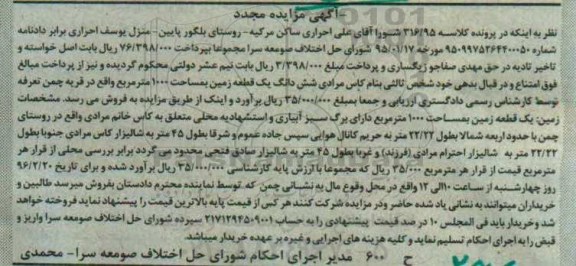 آگهی مزایده مجدد
نظر به اینکه در پرونده کلاسه ۳۱۶/۹۵ شورا آقای علی احراری ساکن مرکیه - روستای بلگور پایین - منزل یوسف احراری برابر دادنامه
شماره ۹۵۰۹۹۷۵۲۶۴۴۰۰۰۵۰ مورخه ۹۵/۰۱/۱۷ شورای حل اختلاف صومعه سرا مجموعا بپرداخت ۷۶/۳۹۸/۰۰۰ ریال بابت اصل خواسته و
تاخیر تادیه در حق مهدی صفاجو زیگساری و پرداخت مبلغ ۳/۳۹۸/۰۰۰ ریال بابت نیم عشر دولتی محکوم گردیده و نیز از پرداخت مبالغ
فوق امتناع و در قبال بدهی خود شخص ثالثی بنام کاس مرادی شش دانگ یک قطعه زمین بمساحت ۱۰۰۰ مترمربع واقع در قریه چمن تعرفه
توسط کارشناس رسمی دادگستری ارزیابی و جمعا بمبلغ ۳۵/۰۰۰/۰۰۰ ریال برآورد و اینک از طریق مزایده به فروش می رسد. مشخصات
زمین: یک قطعه زمین بمساحت ۱۰۰۰ مترمربع دارای برگ سبز آبیاری و استشهادیه محلی متعلق به کاس خانم مرادی واقع در روستای
چمن با حدود اربعه شمالا بطول ۲۲/۲۲ متر به حریم کانال هوایی سپس جاده عموم و شرقا بطول ۴۵ متر به شالیزار کاس مرادی جنوبا بطول
۲۲/۲۲ متر به شالیزار احترام مرادی (فرزند) و غربا بطول ۴۵ متر به شالیزار صادق فتحی محدود می گردد برابر بررسی محلی از قرار هر
مترمربع قیمت از قرار هر مترمربع ۳۵/۰۰۰ ریال که مجموعا با ارزش پایه کارشناسی ۳۵/۰۰۰/۰۰۰ ریال برآورد شده و برای تاریخ ۹۶/۲/۲۰
روز چهارشنبه از ساعت ۱۰ الی ۱۲ واقع در محل وقوع مال به نشانی چمن که توسط نماینده محترم دادستان بفروش میرسد طالبین و
خریداران میتوانند به نشانی یاد شده حاضر ودر مزایده شرکت کنند هر کس از قیمت پایه بالاترین قیمت را پیشنهاد نماید فروخته خواهد
شد وخریدار باید فی المجلس ۱۰ در صد قیمت پیشنهادی را به حساب ۲۱۷۱۲۹۴۵۰۹۰۰۱ سپرده شورای حل اختلاف صومعه سرا واریز و
قبض را به اجرای احکام تسلیم نماید و کلیه هزینه های اجرایی و غیره بر عهده خریدار میباشد.
ح ۶۰۰ مدیر اجرای احکام شورای حل اختلاف صومعه سرا- محمدی